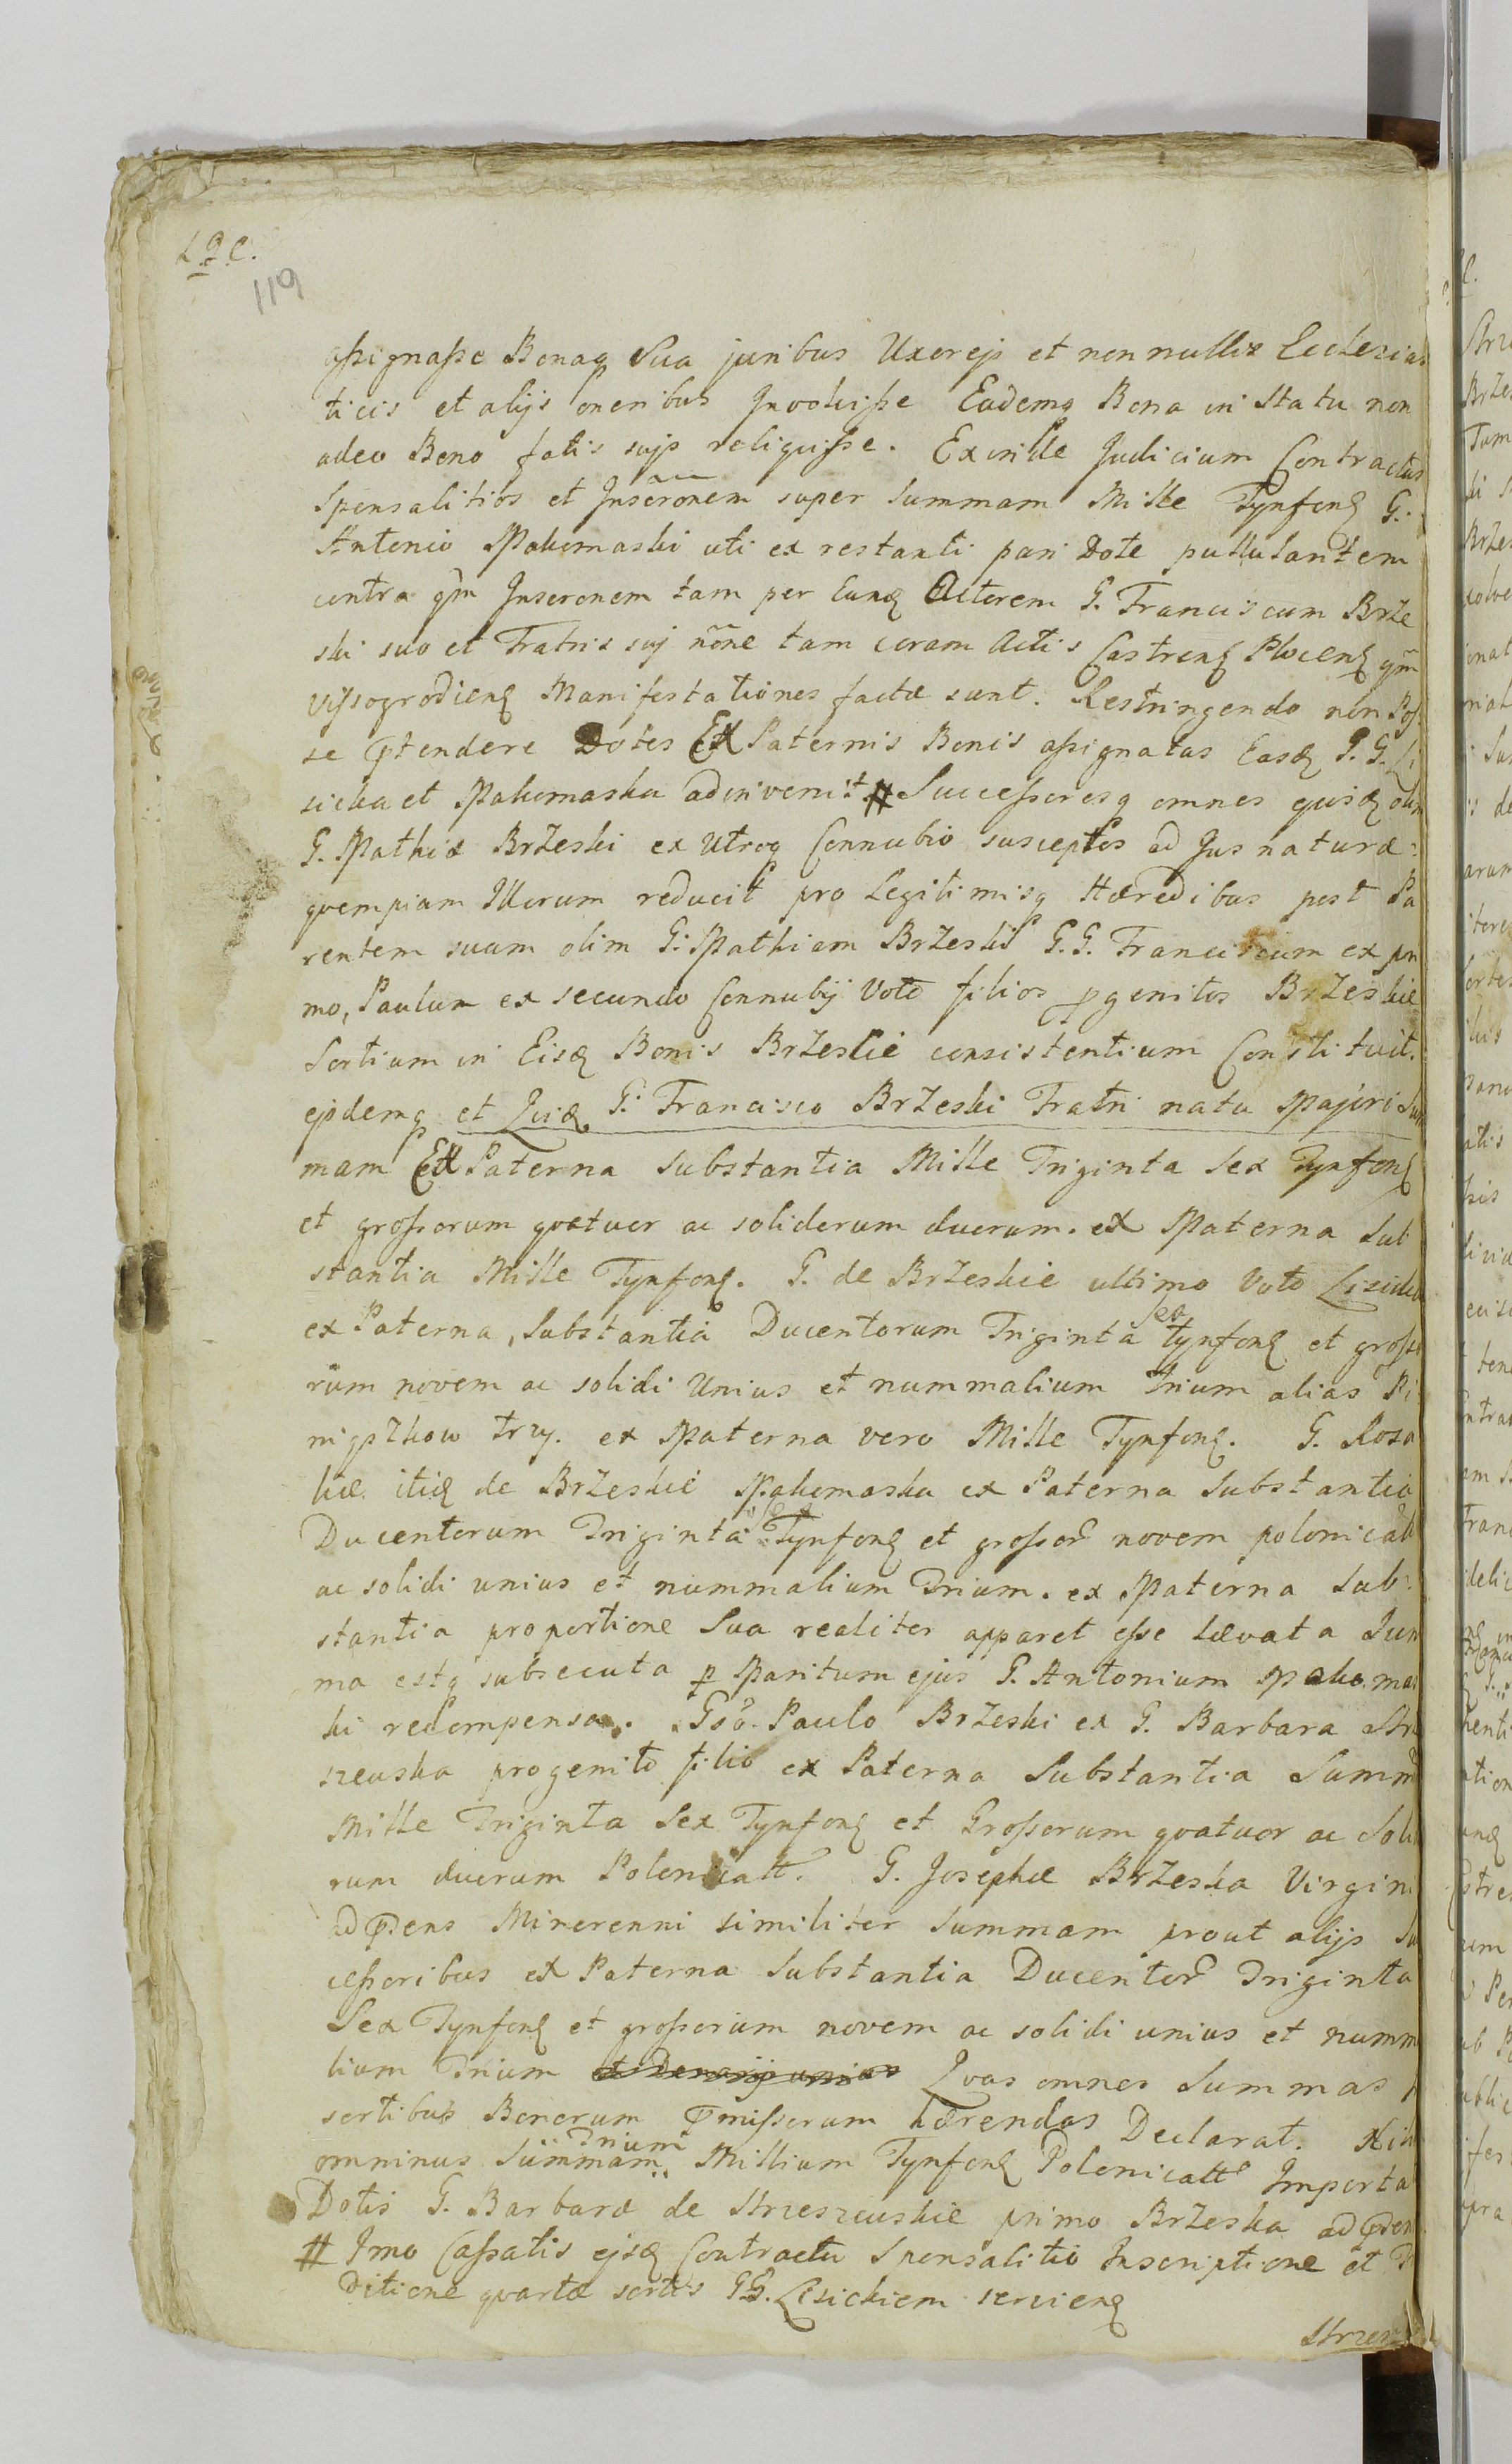 L. Q. C.
119
assignasse Bonaq Sua juribus Uxoreis et non nullis Ecclesias
ticis et alijs oneribus Involvisse Eademq Bona in Statu non
adeo Bono fatis sujs reliquisse. Ex inde Judicium Contractus
Sponsalitios et Inscronem super Summam Mille Tynfonq G.
Antonio Makomaski uti ex restanti pari Dote pullulantem
contra qm Inscronem tam per Eunq Actorem G. Franciscum Brze
ski suo et Fratris suj nõne tam coram Actis Castrenq Plocenq qm
Vyssogrodienq Manifestationes factæ sunt. Restringendo non Pos
se prtendere Dotes Ex Paternis Bonis assignatas Easq G. G. Li
sicka et Makomaska adinvenit # Successoresq omnes ejusq olim
G. Mathiæ Brzeski ex Utroq Connubio susceptos ad Jus naturæ
quempiam Illorum reducit pro Legitimisq Hæredibus post Pa
rentem suum olim G. Mathiam Brzeski G. G. Franciscum ex pri
mo, Paulum ex secundo Connubij Voto filios pgenitos Brzeskie
Sortium in Eisq Bonis Brzeskie consistentium Constituit.
ejsdemq et Quiq G. Francisco Brzeski Fratri natu Majori Sum
mam Ex Paterna Substantia Mille Triginta Sex Tynfonq
et grossorum quatuor ac solidorum duorum. ex Materna Sub
stantia Mille Tynfonq. G. de Brzeskie ultimo Voto Lisicka
ex Paterna Substantia Ducentorum Triginta Sex tynfonq et grosso
rum novem ac solidi Unius et nummalium Trium alias Pi
nigszkow trzy. ex Materna vero Mille Tynfonq. G. Rosa
liæ itiq de Brzeskie Makomaska ex Paterna Substantia
Ducentorum Triginta Sex Tynfonq et grossor novem polonicall
ac solidi unius et nummalium Trium. ex Materna Sub
stantia proportione Sua realiter apparet esse Lævata Sum
ma estq subsecuta p Maritum ejus G. Antonium Makomas
ki recompensa. Gso. Paulo Brzeski ex G. Barbara Strze
szewska progenito filio ex Paterna Substantia Summa
Mille Triginta Sex Tynfonq et Grossorum quatuor ac Solido
rum duorum Polonicall. G. Josephæ Brzeska Virgini
ad prsens Minorenni similiter Summam prout alijs Suc
cessoribus ex Paterna Substantia Ducentor Triginta
Sex Tynfonq et grossorum novem ac solidi unius et numma
lium Trium et Denarij unius Quas omnes Summas
sortibus Bonorum prmissorum hærendas Declarat.
omninus Summam Trium Millium Tynfonq Polonicall Importa
Dotis G. Barbaræ de Strzeszewskie primo Brzeska ad prsen
# Imo Cassatis ejsq Contractu Sponsalitio Inscriptione et
Ditione quartæ sortis GG. Lisickiem servienq
Strzesz